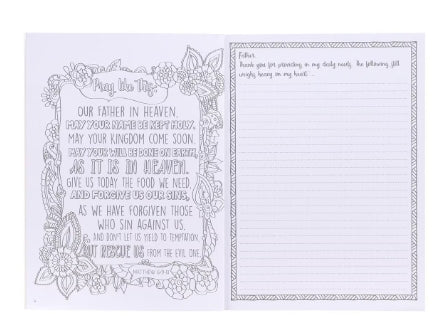 Pray like This:
OUR FATHER IN HEAVEN,
MAY YOUR NAME BE KEPT HOLY.
MAY YOUR KINGDOM COME SOON.
MAY YOUR WILL BE DONE ON EARTH,
AS IT IS IN HEAVEN.
GIVE US TODAY THE FOOD WE NEED,
AND FORGIVE US OUR SINS,
AS WE HAVE FORGIVEN THOSE
WHO SIN AGAINST US.
AND DON'T LET US YIELD TO TEMPTATION,
BUT RESCUE US FROM THE EVIL ONE.
MATTHEW 6:9-13
Father,
Thank you for providing in my daily needs. The following still
weighs heavy on my heart: ...